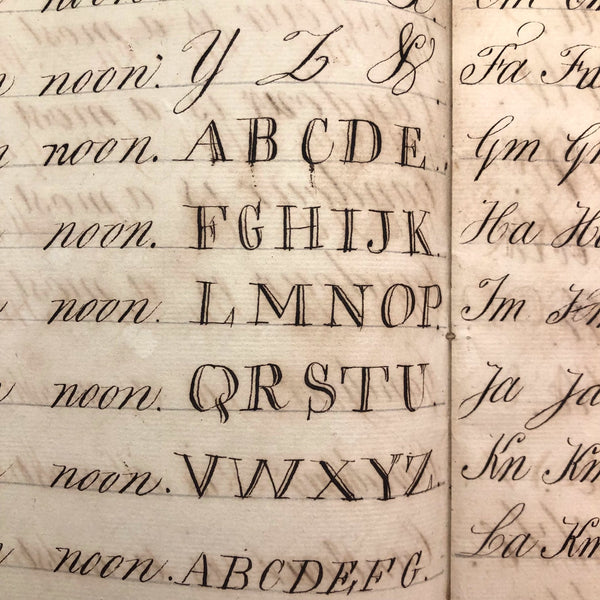 noon. Y Z &
noon. A B C D E.
noon. F G H I J K.
noon. L M N O P.
noon. Q R S T U.
noon. V W X Y Z.
noon. A B C D E, F G.
Fa
Gm
Ha Ha
Im
Ja Ja
Kn Km
La Km